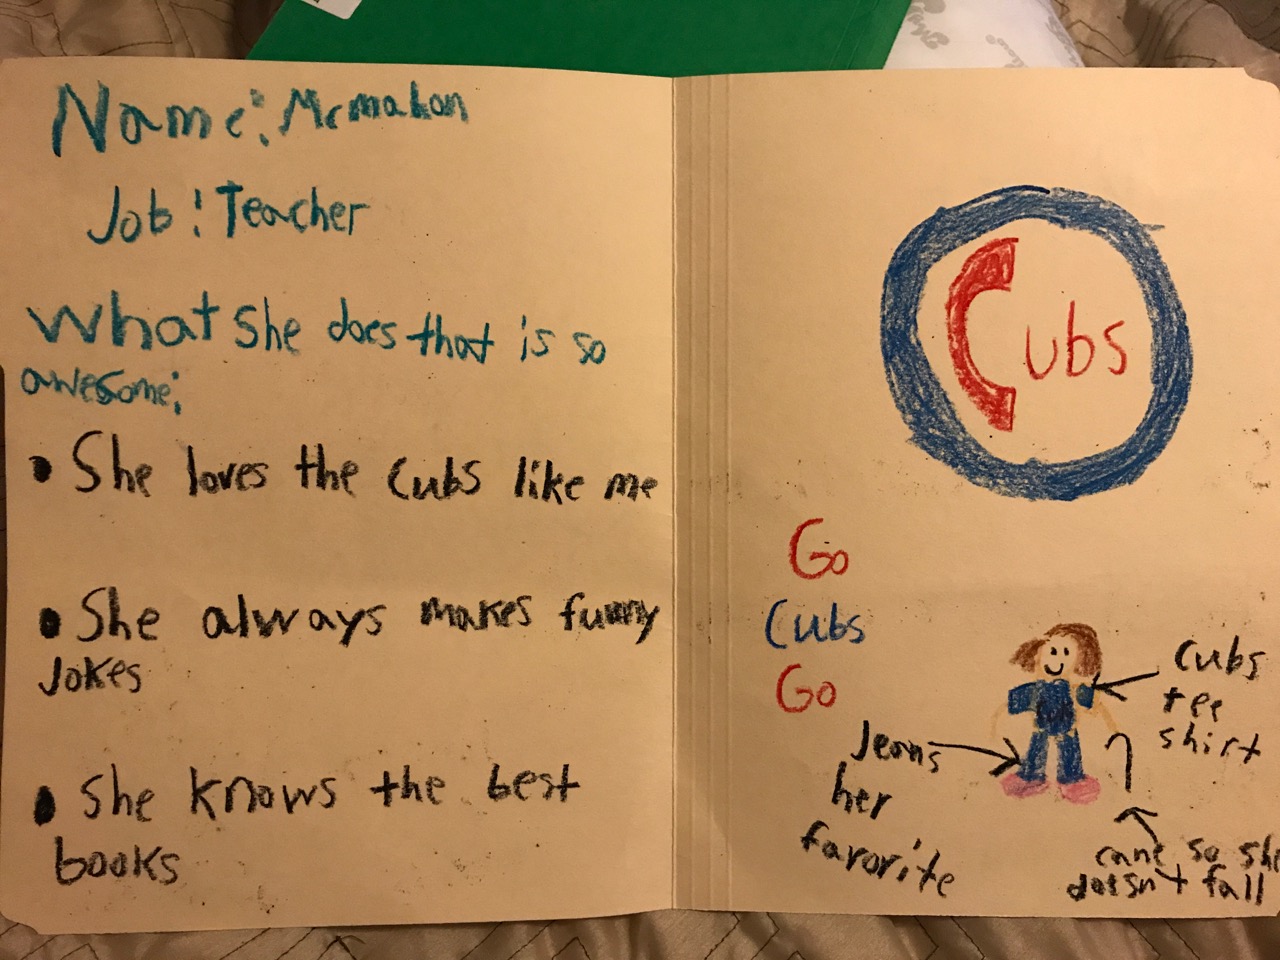 Name: Mcmahon
Job: Teacher
What she does that is so
awesome:
• She loves the Cubs like me
• She always makes funny
Jokes
• She knows the best
books
Cubs
Go
Cubs
Go
Cubs
tee
shirt
Jeans
her
favorite
cane so she
doesnt fall